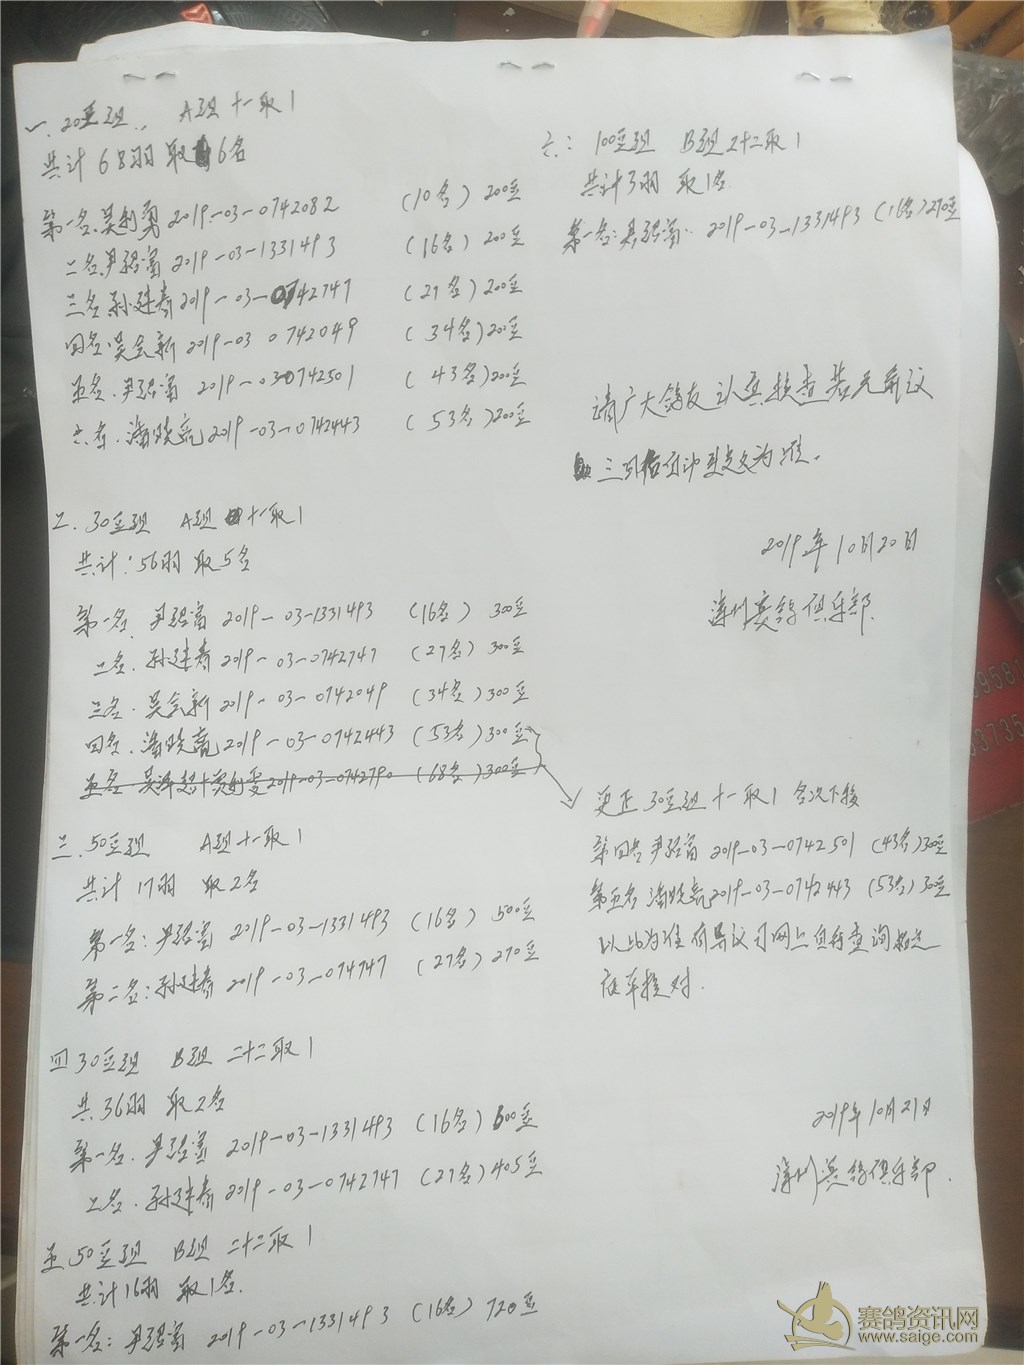 一. 20豆组.. A组 十一取1
共计68羽 取6名
第一名.吴利勇 2019-03-0742082 (10名) 200豆
二名.尹绍富 2019-03-1331493 (16名) 200豆
三名 孙建春 2019-03-0742747 (27名) 200豆
四名.吴会新 2019-03 0742049 (34名) 200豆
五名.尹绍富 2019-030742501 (43名) 200豆
六名.潘晓亮 2019-03-0742443 (53名) 200豆
二. 30豆组 A组 十一取1
共计:56羽 取5名
第一名. 尹绍富 2019-03-1331493 (16名) 300豆
二名. 孙建春 2019-03-0742747 (27名) 300豆
三名. 吴会新 2019-03-0742049 (34名) 300豆
四名. 潘晓亮 2019-03-0742443 (53名) 300豆
五名 2019-03-0742790 (68名) 300豆
三. 50豆组 A组 十一取1
共计 17羽 取2名
第一名: 尹绍富 2019-03-1331493 (16名) 500豆
第二名: 孙建春 2019-03-074747 (27名) 270豆
四 30豆组 B组 二十二取1
共36羽 取2名
第一名. 尹绍富 2019-03-1331493 (16名) 600豆
二名. 孙建春 2019-03-0742747 (27名) 405豆
五 50豆组 B组 二十二取1
共计16羽 取1名.
第一名: 尹绍富 2019-03-1331493 (16名) 720豆
六: 100豆组 B组 二十二取1
共计3羽 取1名
第一名: 尹绍富.. 2019-03-1331493 (16名) 270豆
请广大鸽友认真核查若无异议
三日后自动更交为准。
2019年10月20日
漳州赛鸽俱乐部.
更正 30豆组 十一取1 名次下移
第四名 尹绍富 2019-03-0742501 (43名) 30豆
第五名 潘晓亮 2019-03-0742443 (53名) 30豆
以此为准 有异议可网上自行查询
核对.
2019年10月21日
漳州赛鸽俱乐部.
赛鸽资讯网
www.saige.com